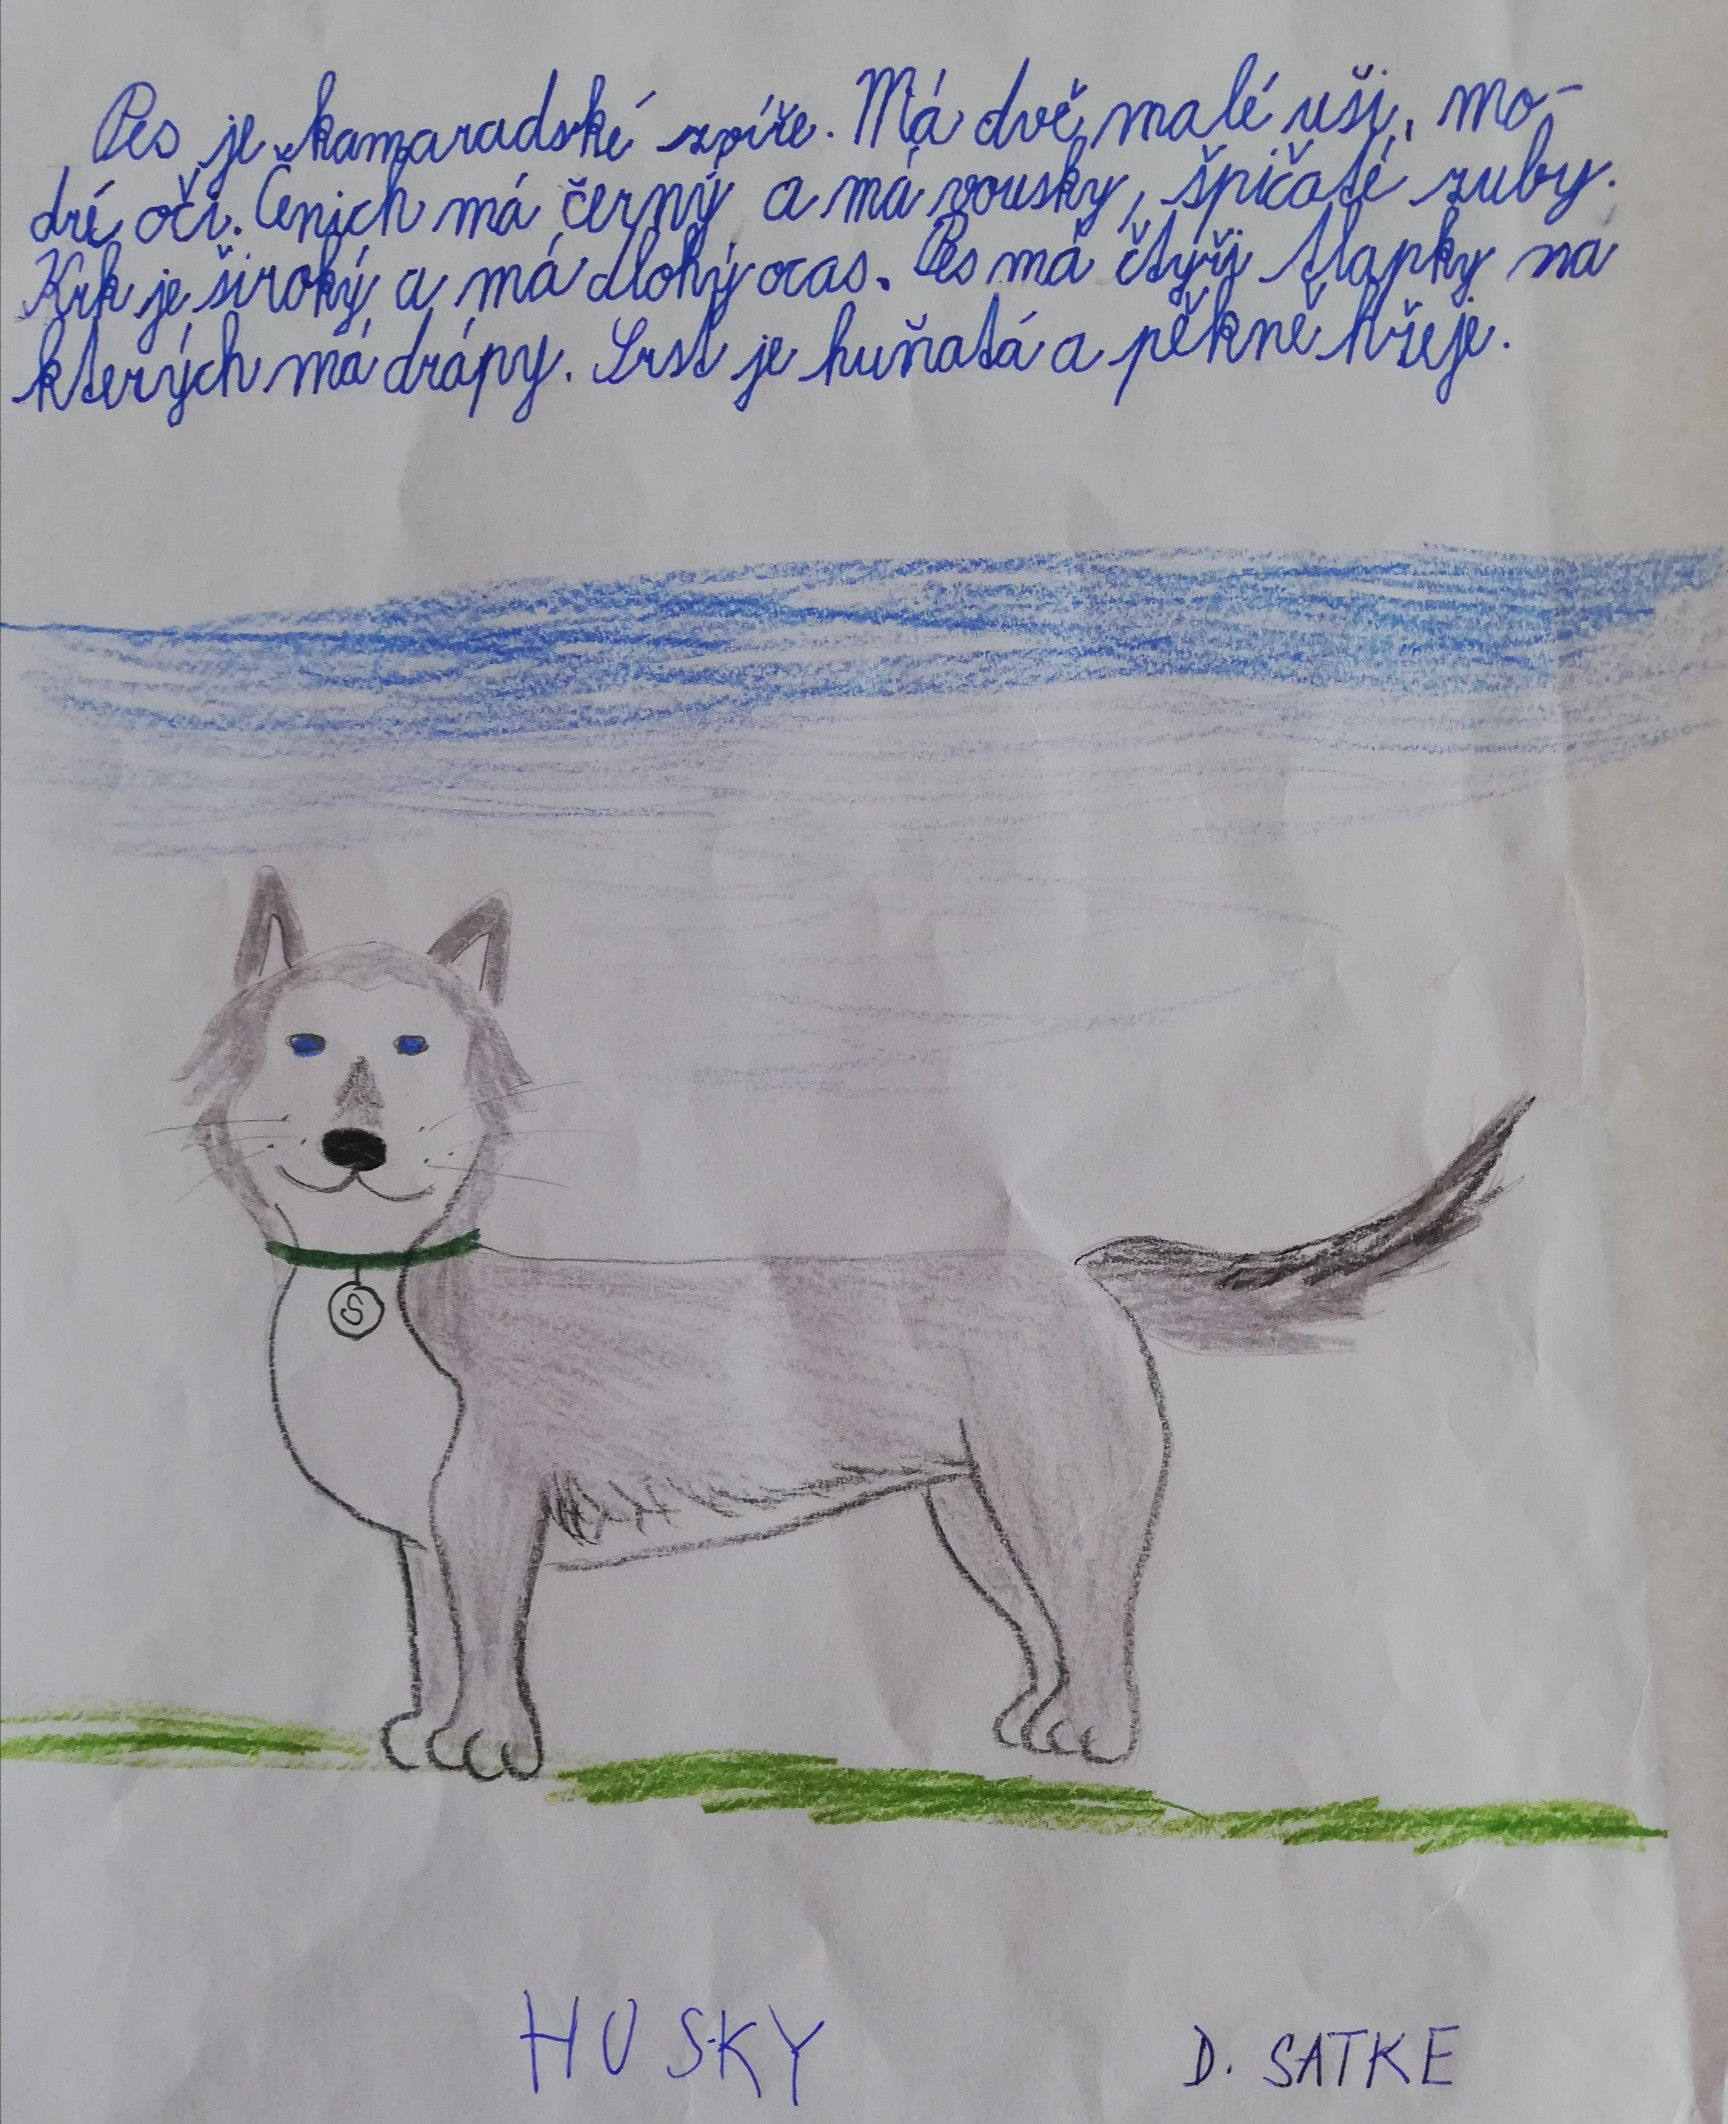 Pes je kamaradské zvíře. Má dvě malé uši, mo-
dré oči. Čenich má černý a má vousky, špičaté zuby.
Krk je široký a má dlohý ocas. Pes má čtyři tlapky na
kterých má drápy. Srst je huňatá a pěkně hřeje.
S
HUSKY
D. SATKE